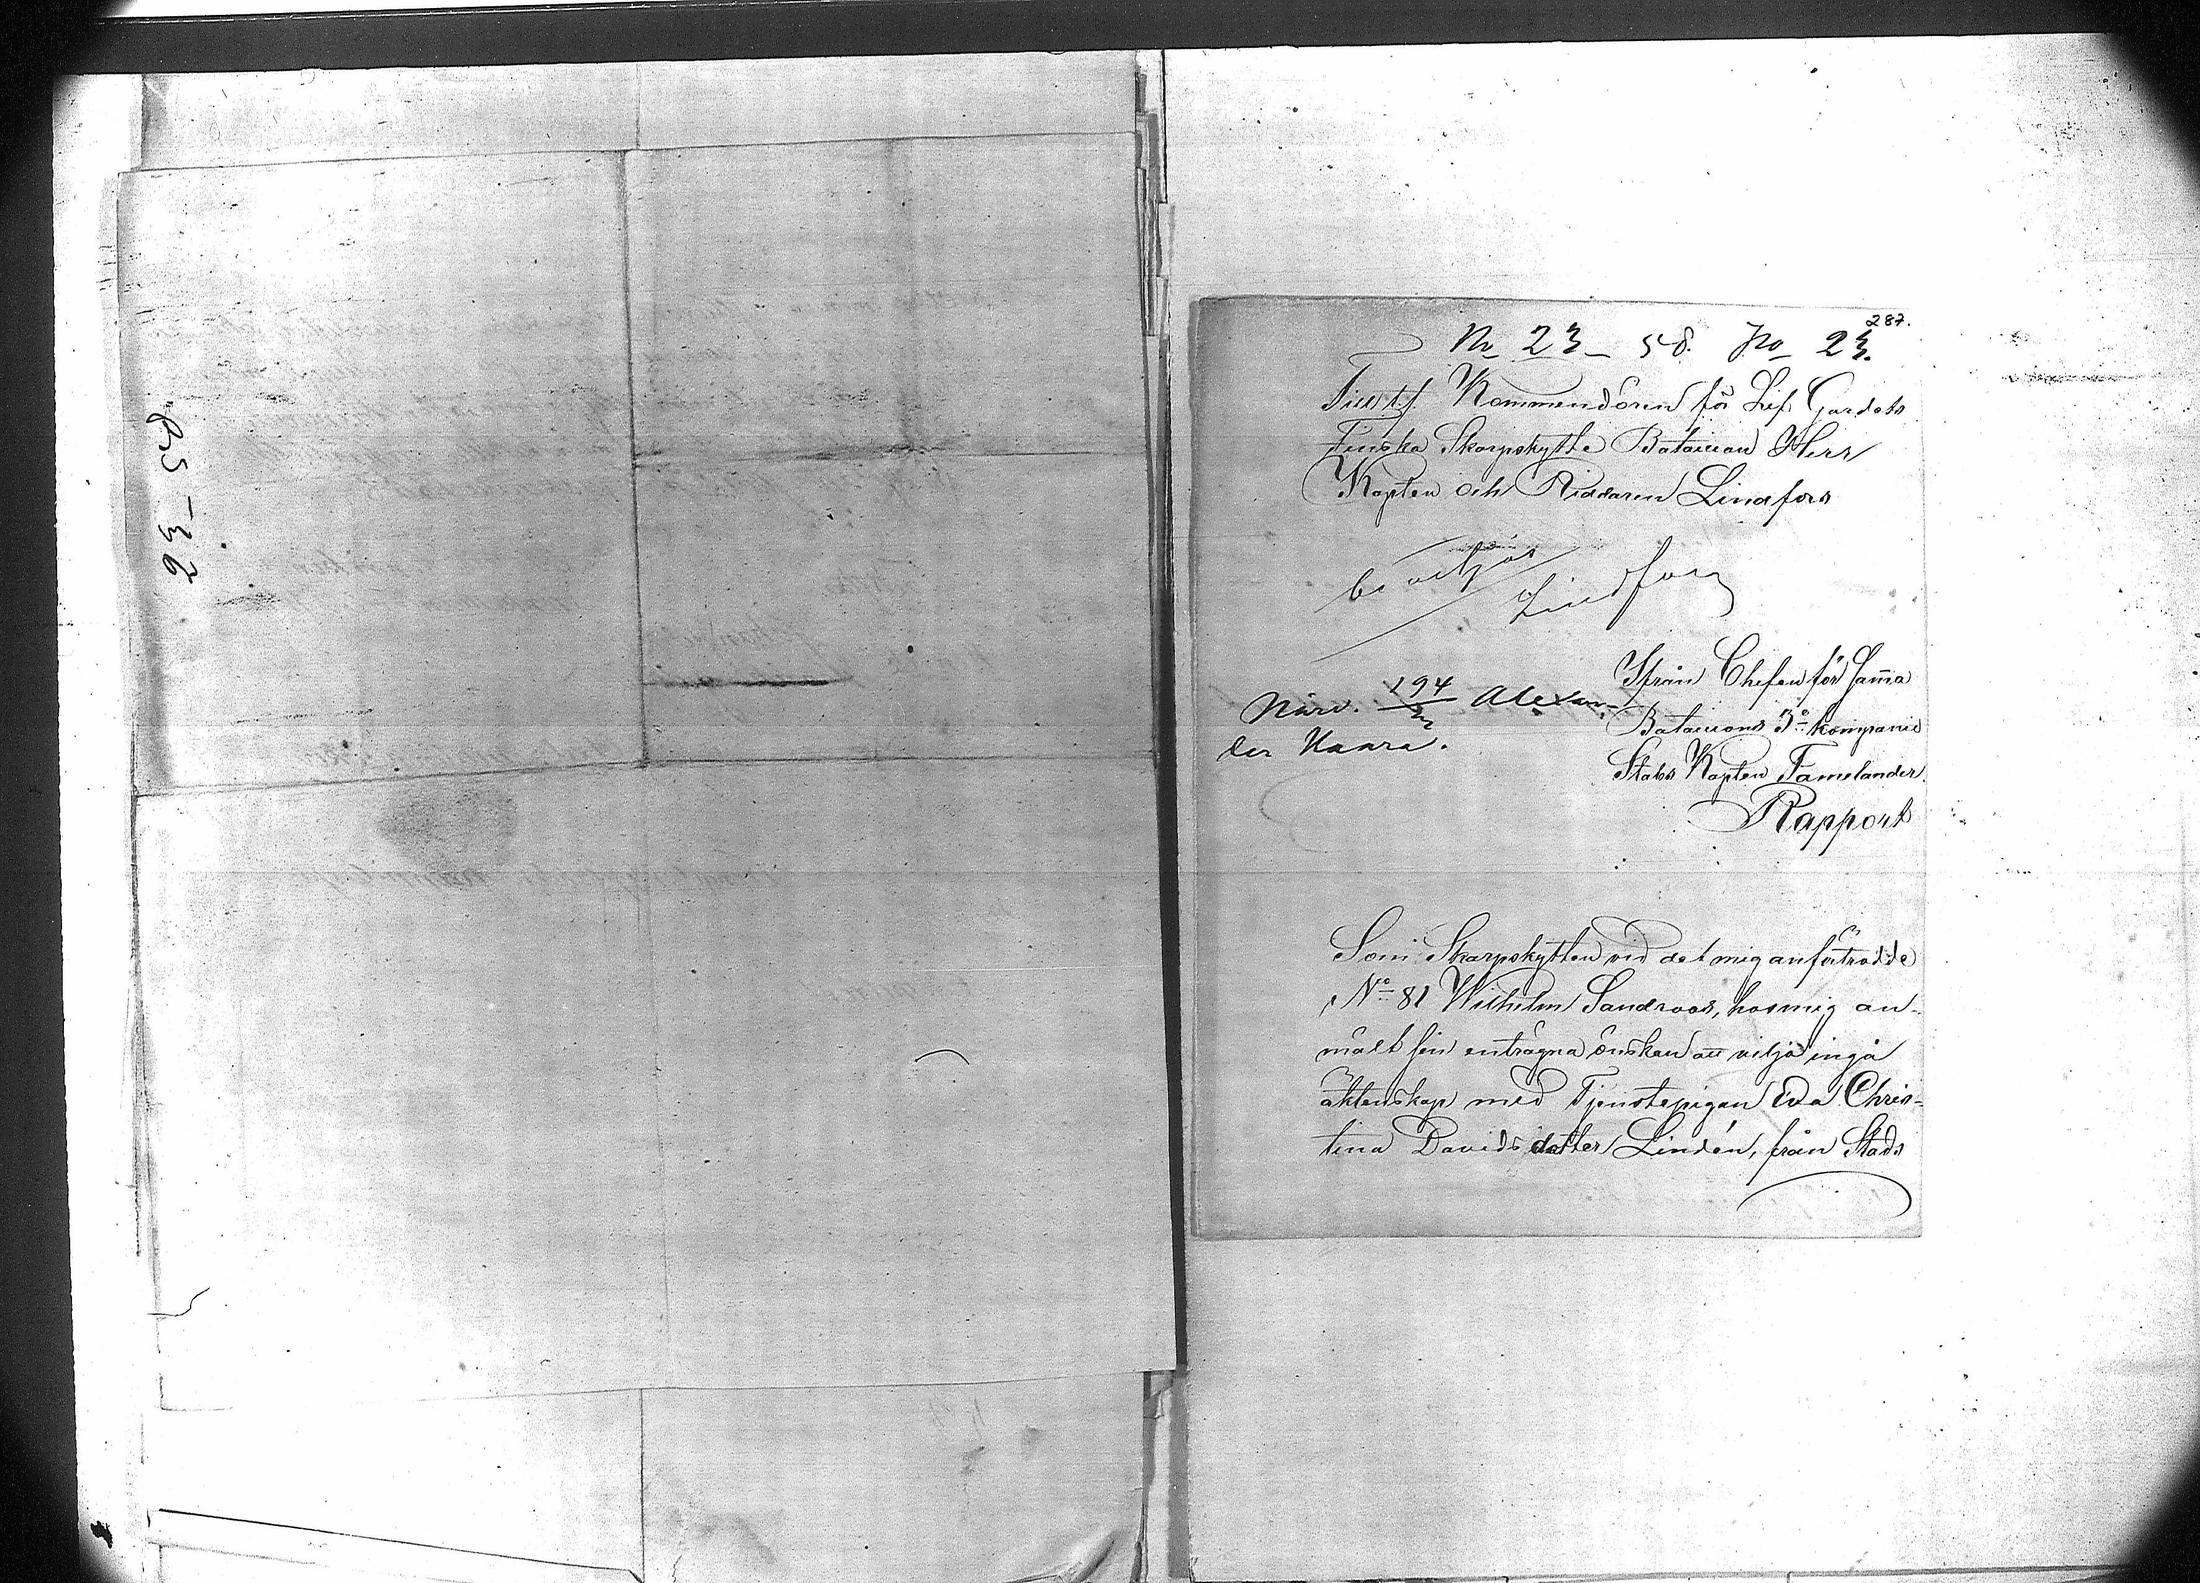 23 – 58
287.
No 23 – 58. No 23.
Till t.f. Kommendören för Lif Gardets
Finska Skarpskytte Bataillon Herr
Kapten och Riddaren Lindfors
beviljas
Lindfors
Ifrån Chefen för Samma
Bataillons 3º kompanie
Stabs Kapten Tamelander
Rapport
194
Alexan-
der Kaara.
Som Skarpskytten vid det mig anförtrodde
Nº 81 Wilhelm Sandroos, hos mig an-
mält sin enträgna önskan att vilja ingå
äktenskap med Tjenstepigan Eva Chris-
tina Davidsdotter Lindén, från Stads